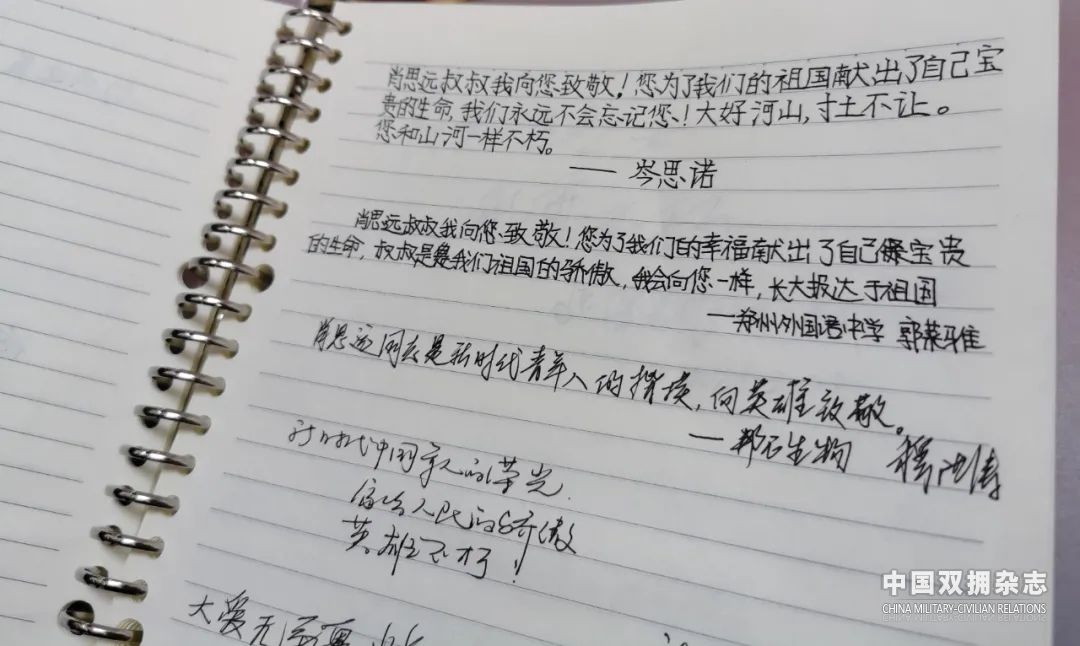 肖思远叔叔我向您致敬！您为了我们的祖国献出了自己宝
贵的生命，我们永远不会忘记您！大好河山，寸土不让。
您和山河一样不朽。
—— 岑思诺
肖思远叔叔我向您致敬！您为了我们的幸福献出了自己宝贵
的生命，叔叔是我们祖国的骄傲，我会向您一样，长大报达于祖国
——郑州外国语中学 郭
肖思远同志是新时代青年人的楷模，向英雄致敬。
—邦石生物
新时代中国军人的荣光
人民的骄傲
英雄不朽！
大爱无
中国双拥杂志
CHINA MILITARY-CIVILIAN RELATIONS